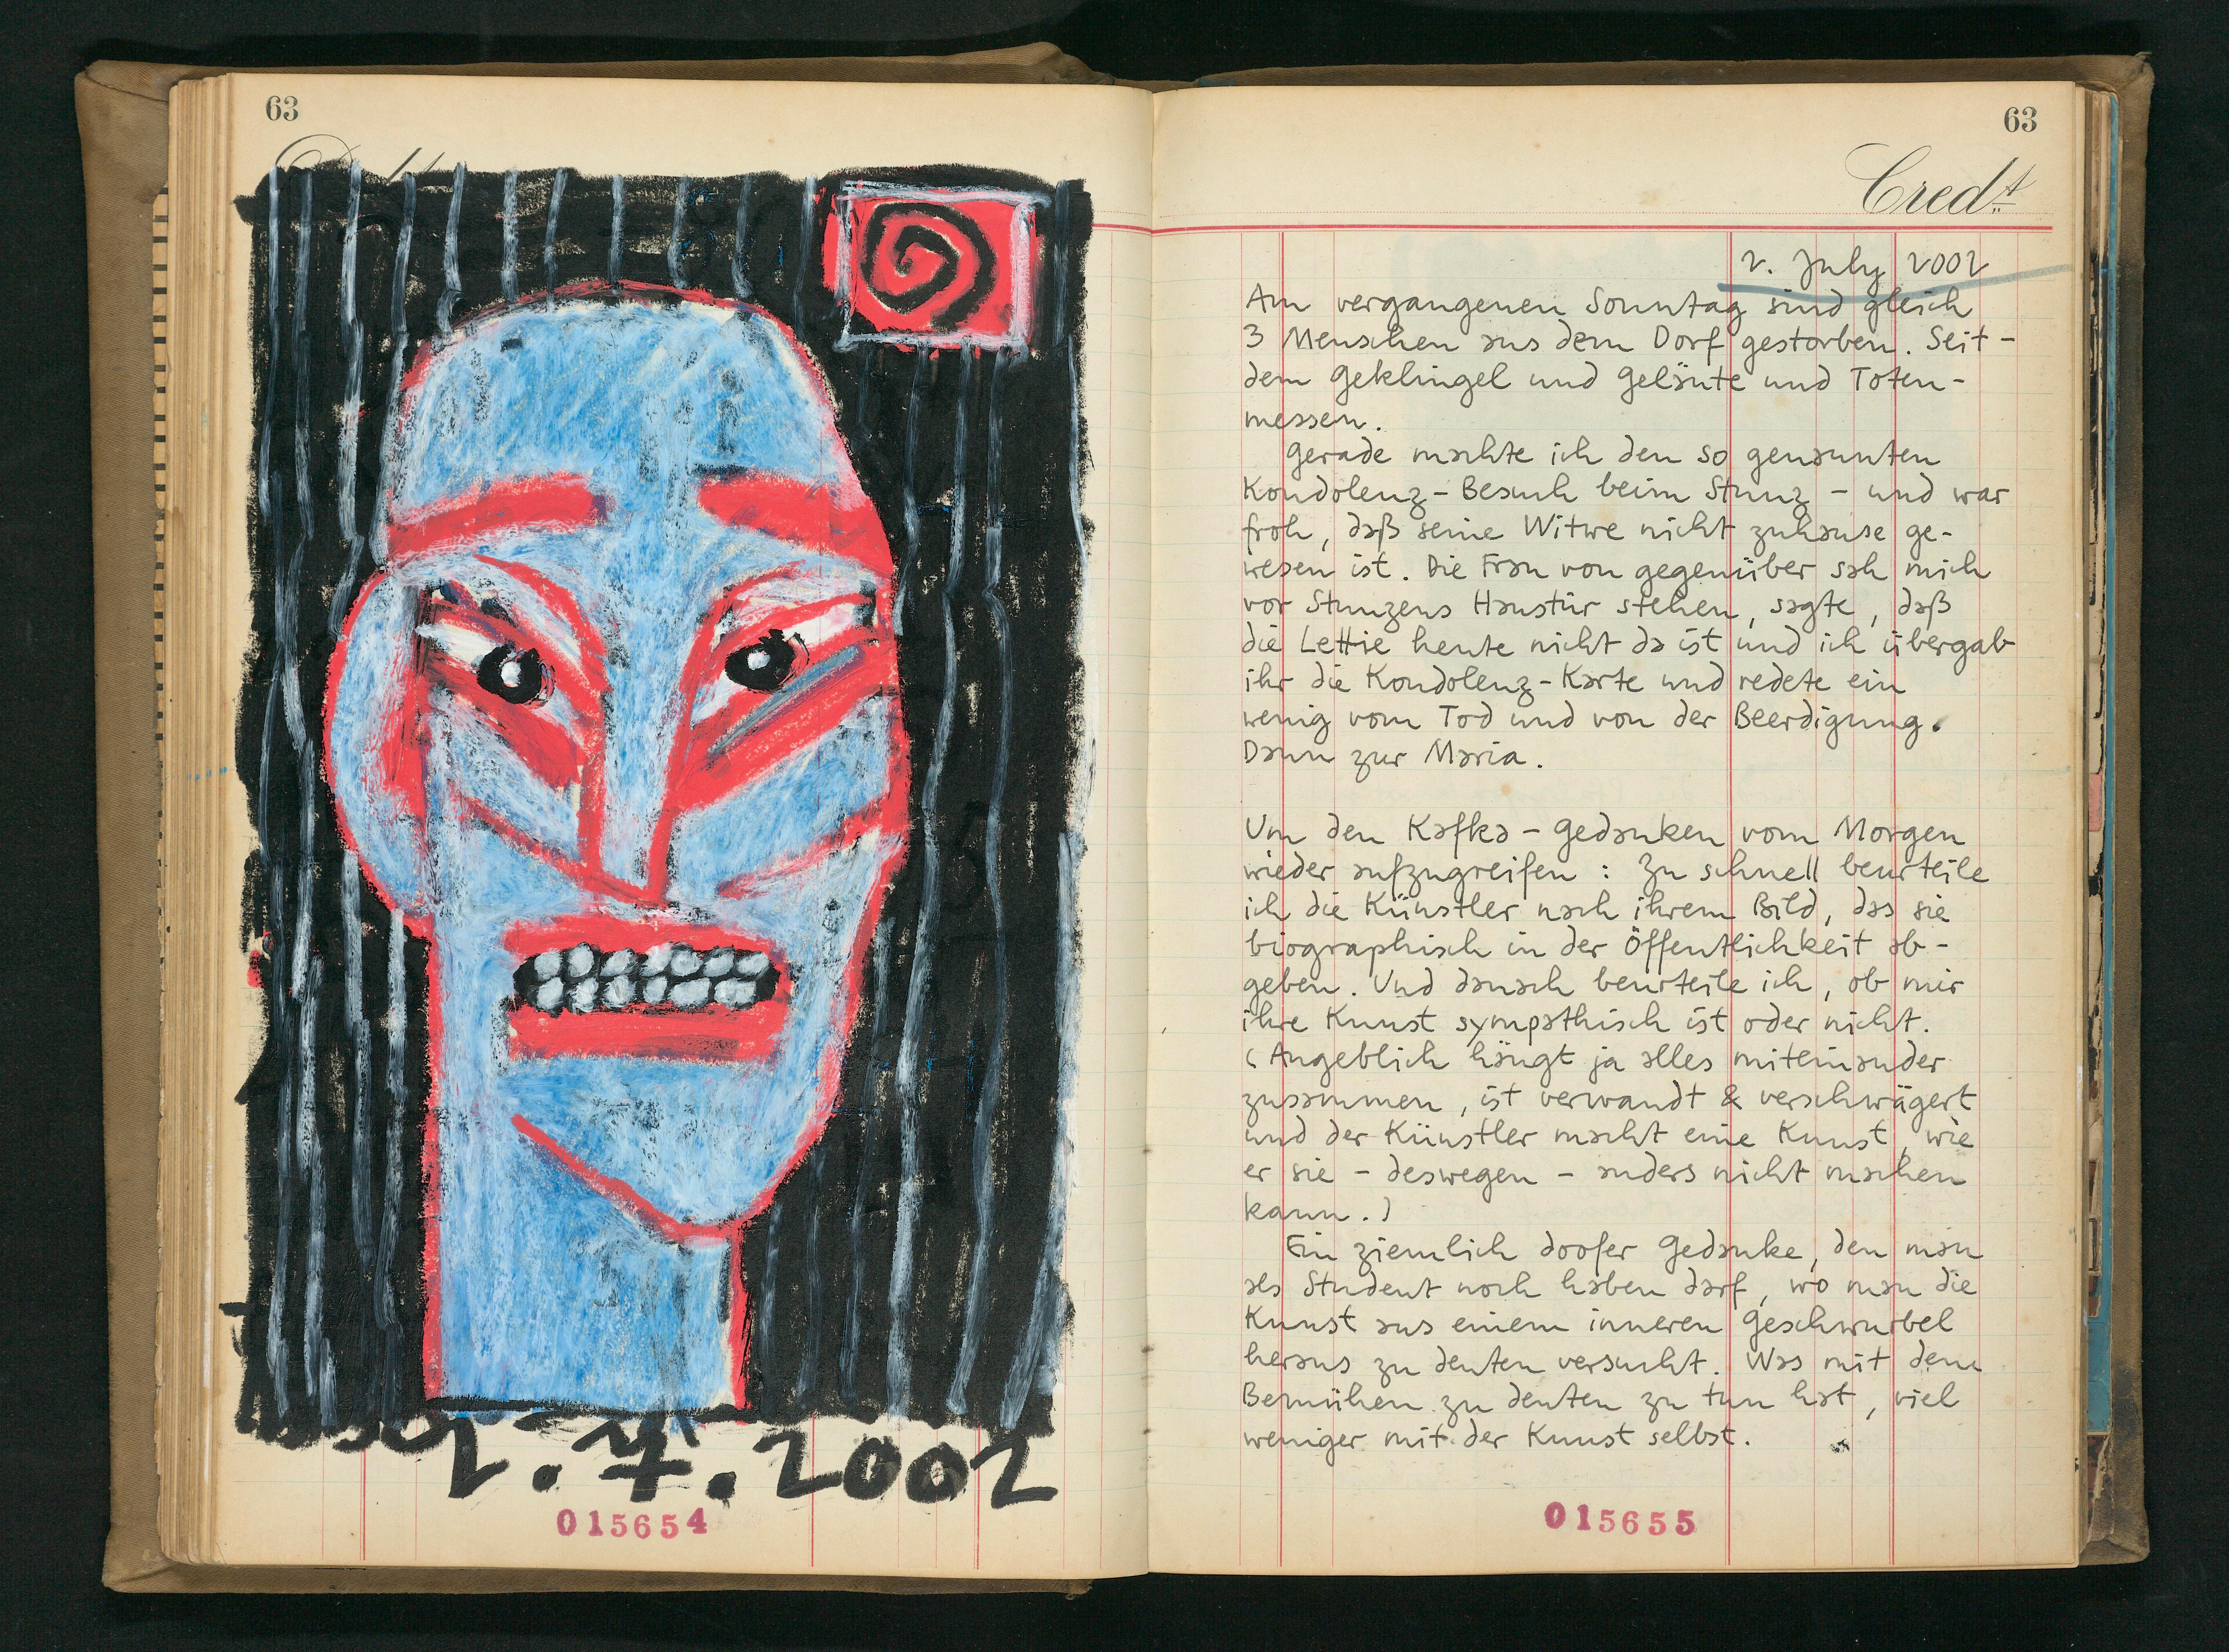 63
2.7.2002
015654
63
Cred.t
2. July 2002
Am vergangenen Sonntag sind gleich
3 Menschen aus dem Dorf gestorben. Seit-
dem Geklingel und Geläute und Toten-
messen.
Gerade machte ich den so genannten
Kondolenz-Besuch beim Stunz - und war
froh, daß seine Witwe nicht zuhause ge-
wesen ist. Die Frau von gegenüber sah mich
vor Stunzens Haustür stehen, sagte, daß
die Lettie heute nicht da ist und ich übergab
ihr die Kondolenz-Karte und redete ein
wenig vom Tod und von der Beerdigung.
Dann zur Maria.
Um den Kafka-Gedanken vom Morgen
wieder aufzugreifen: Zu schnell beurteile
ich die Künstler nach ihrem Bild, das sie
biographisch in der Öffentlichkeit ab-
geben. Und danach beurteile ich, ob mir
ihre Kunst sympathisch ist oder nicht.
(Angeblich hängt ja alles miteinander
zusammen, ist verwandt & verschwägert
und der Künstler macht eine Kunst, wie
er sie - deswegen - anders nicht machen
kann.)
Ein ziemlich doofer Gedanke, den man
als Student noch haben darf, wo man die
Kunst aus einem inneren Geschwurbel
heraus zu deuten versucht. Was mit dem
Bemühen zu deuten zu tun hat, viel
weniger mit der Kunst selbst.
015655